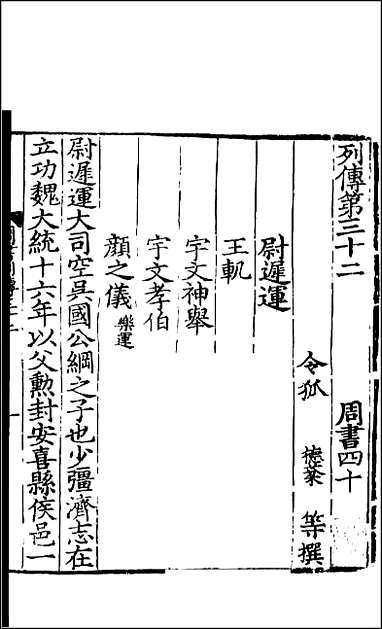 列傳第三十二 周書四十
令狐 德棻 等撰
尉遲運
王軌
宇文神舉
宇文孝伯
顏之儀 樂運
尉遲運大司空吳國公綱之子也少彊濟志在
立功魏大統十六年以父勳封安喜縣侯邑一